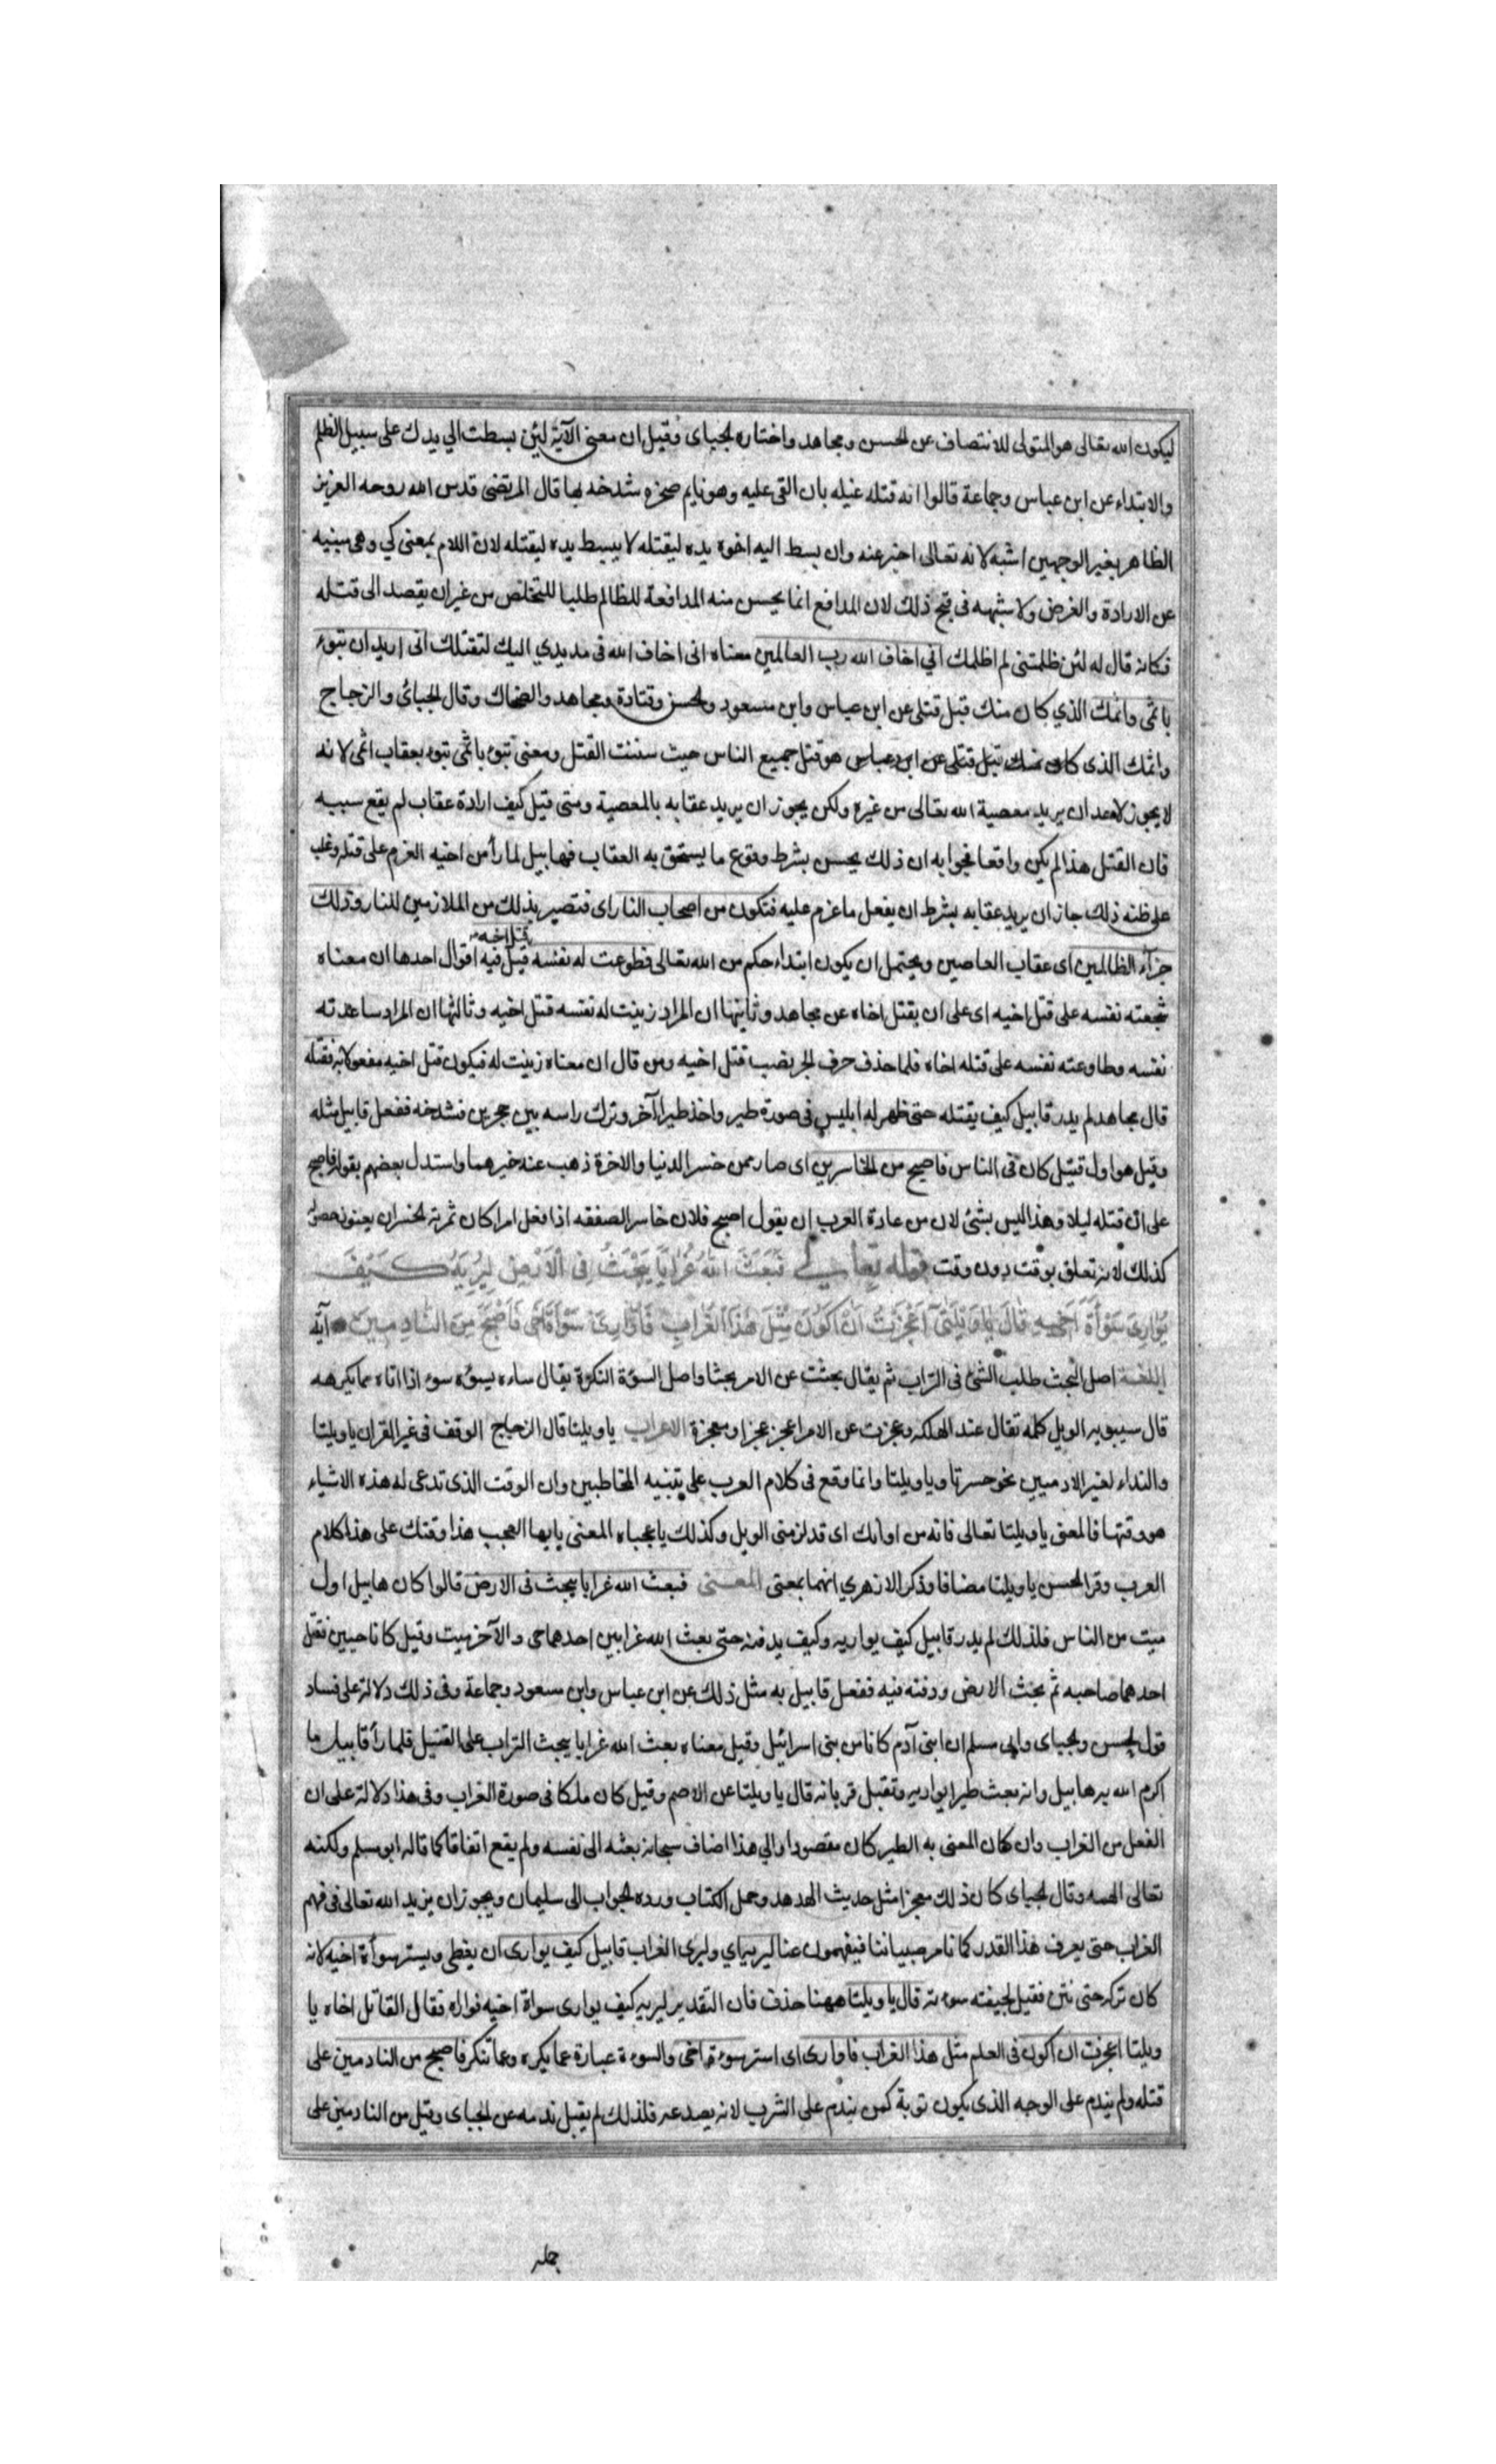 ليكون الله تعالى هو المتولى للانتصاف عن الحسن ومجاهد واختاره الجباى وقيل ان معنى الآية لئن بسطت الي يدك على سبيل الظلم
والابتداء عن ابن عباس وجماعة قالوا انه قتله غيله بان القى عليه وهو نايم صخره شدخه بها قال المرتضى قدس الله روحه العزيز
الظاهر بغير الوجهين اشبه لانه تعالى اخبر عنه وان بسط اليه اخوه يده ليقتله لا يبسط يده ليقتله لان اللام بمعنى كي وهى مبنيه
عن الارادة والغرض ولا شبهه فى قبح ذلك لان المدافع انما يحسن منه المدافعة للظالم طلبا للتخلص من غير ان يقصد الى قتله
فكانه قال له لئن ظلمتنى لم اظلمك اني اخاف الله رب العالمين معناه انى اخاف الله فى مد يدي اليك لتقتلك انى اريد ان تبوء
باثمى واثمك الذي كان منك قبل قتلى عن ابن عباس وابن مسعود والحسن وقتادة ومجاهد والضحاك وقال الجبائى والزجاج
واثمك الذى كان منك قبل قتلى عن ابن عباس هو قتل جميع الناس حيث سننت القتل ومعنى تبوء باثمى تبوء بعقاب اثمى لانه
لا يجوز لاحد ان يريد معصية الله تعالى من غيره ولكن يجوز ان يريد عقابه بالمعصية ومتى قيل كيف ارادة عقاب لم يقع سببه
فان القتل هذا لم يكن واقعا فجوابه ان ذلك يحسن بشرط وقوع ما يستحق به العقاب فهابيل لما رأ من اخيه العزم على قتله وغلب
على ظنه ذلك جاز ان يريد عقابه بشرط ان يفعل ما عزم عليه فتكون من اصحاب النار اى فتصير بذلك من الملازمين للنار وذلك
جزآء الظالمين اى عقاب العاصين ويحتمل ان يكون ابتداء حكم من الله تعالى فطوعت له نفسه قتل اخيه قيل فيه اقوال احدها ان معناه
شجعته نفسه على قتل اخيه اى على ان يقتل اخاه عن مجاهد وثانيها ان المراد زينت له نفسه قتل اخيه وثالثها ان المراد ساعدته
نفسه وطاوعته نفسه على قتله اخاه فلما حذف حرف الجر نصب قتل اخيه ومن قال ان معناه زينت له فيكون قتل اخيه مفعولا به فقتله
قال مجاهد لم يدر قابيل كيف يقتله حتى ظهر له ابليس فى صورة طير واخذ طيرا آخر وترك راسه بين حجرين فشدخه ففعل قابيل مثله
وقيل هو اول قتيل كان فى الناس فاصبح من الخاسرين اى صار ممن خسر الدنيا والاخرة ذهب عنه خيرهما واستدل بعضهم بقوله فاصبح
على ان قتله ليلا وهذا ليس بشئ لان من عادة العرب ان يقول اصبح فلان خاسر الصفقه اذا فعل امرا كان ثمرته الخسران يعنون حصوله
كذلك لا انه تعلق بوقت دون وقت قوله تعالى فَبَعَثَ اللهُ غُرَابًا يَبْحَثُ فِى الْاَرْضِ لِيُرِيَهُ كَيْفَ
يُوَارِى سَوْأَةَ اَخِيهِ قَالَ يَا وَيْلَتَى اَعَجَزْتُ اَنْ اَكُونَ مِثْلَ هَذَا الْغُرَابِ فَاُوَارِىَ سَوْأَةَ اَخِى فَاَصْبَحَ مِنَ النَّادِمِينَ آية
اللغة اصل البحث طلب الشئ فى التراب ثم يقال بحثت عن الامر بحثا واصل السوة التكره يقال ساءه يسؤه سوء اذا اتاه بما يكرهه
قال سيبويه الويل كلمه تقال عند الهلكه وعجزت عن الامر اعجز عجزا ومعجزة الاعراب يا ويلتا قال الزجاج الوقف فى غير القران يا ويلتا
والنداء لغير الادميين نحو حسرتا ويا ويلتا وانما وقع فى كلام العرب على تنبيه المخاطبين وان الوقت الذى تدعى له هذه الاشياء
هو وقتها فالمعنى يا ويلتا تعالى فانه من اوانك اى قد لزمنى الويل وكذلك يا عجباه المعنى يا ايها العجب هذا وقتك على هذا كلام
العرب وقرا الحسن يا ويلتا مضافا وذكر الازهري انهما بمعنى المعنى فبعث الله غرابا يبحث فى الارض قالوا كان هابيل اول
ميت من الناس فلذلك لم يدر قابيل كيف يواريه وكيف يدفنه حتى بعث الله غرابين احدهما حى والآخر ميت وقيل كانا حيين فقتل
احدهما صاحبه ثم بحث الارض ودفنه فيه ففعل قابيل به مثل ذلك عن ابن عباس وابن مسعود وجماعة وفى ذلك دلالة على فساد
قول الحسن والجباى وابى مسلم ان ابنى آدم كانا من بنى اسرائيل وقيل معناه بعث الله غرابا يبحث التراب على القتيل فلما رأ قابيل ما
اكرم الله به هابيل وانه بعث طيرا يواريه وتقبل قربانه قال يا ويلتا عن الاصم وقيل كان ملكا فى صورة الغراب وفى هذا دلالة على ان
الفعل من الغراب وان كان المعنى به الطير كان مقصودا والي هذا اضاف سبحانه بعثه الى نفسه ولم يقع اتفاقا كما قاله ابو مسلم ولكنه
تعالى الهمه وقال الجباى كان ذلك معجزا مثل حديث الهدهد وحمل الكتاب ورده الجواب الى سليمان ويجوز ان يزيد الله تعالى فى فهم
الغراب حتى يعرف هذا القدر كما نامر صبياننا فيفهمون عنا ليريه اي وليرى الغراب قابيل كيف يوارى ان يغطى ويستر سوأة اخيه لانه
كان تركه حتى نتن فقيل لجيفته سوءته قال يا ويلتا ههنا حذف فان التقدير ليريه كيف يوارى سواة اخيه فواراه فقال القاتل اخاه يا
ويلتا اعجزت ان اكون فى العلم مثل هذا الغراب فاوارى اى استر سوءة اخى والسوءة عبارة عما يكره وعما تنكر فاصبح من النادمين على
قتله ولم يندم على الوجه الذى يكون توبة كمن يندم على الشرب لانه يصدعه فلذلك لم يقبل ندمه عن الجباى وقيل من النادمين على
حمله